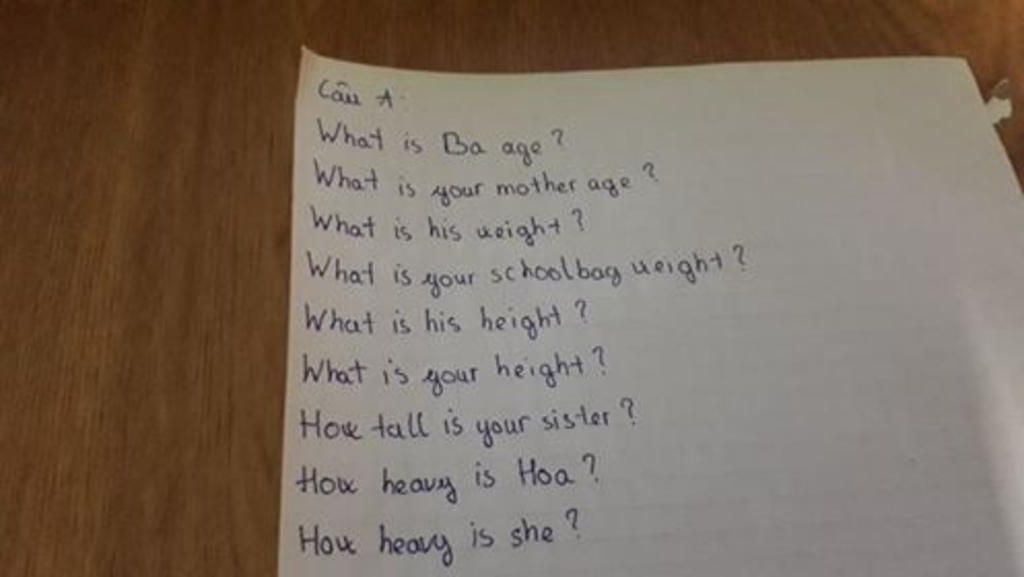 Câu A.
What is Ba age?
What is your mother age?
What is his weight?
What is your schoolbag weight?
What is his height?
What is your height?
How tall is your sister?
How heavy is Hoa?
How heavy is she?